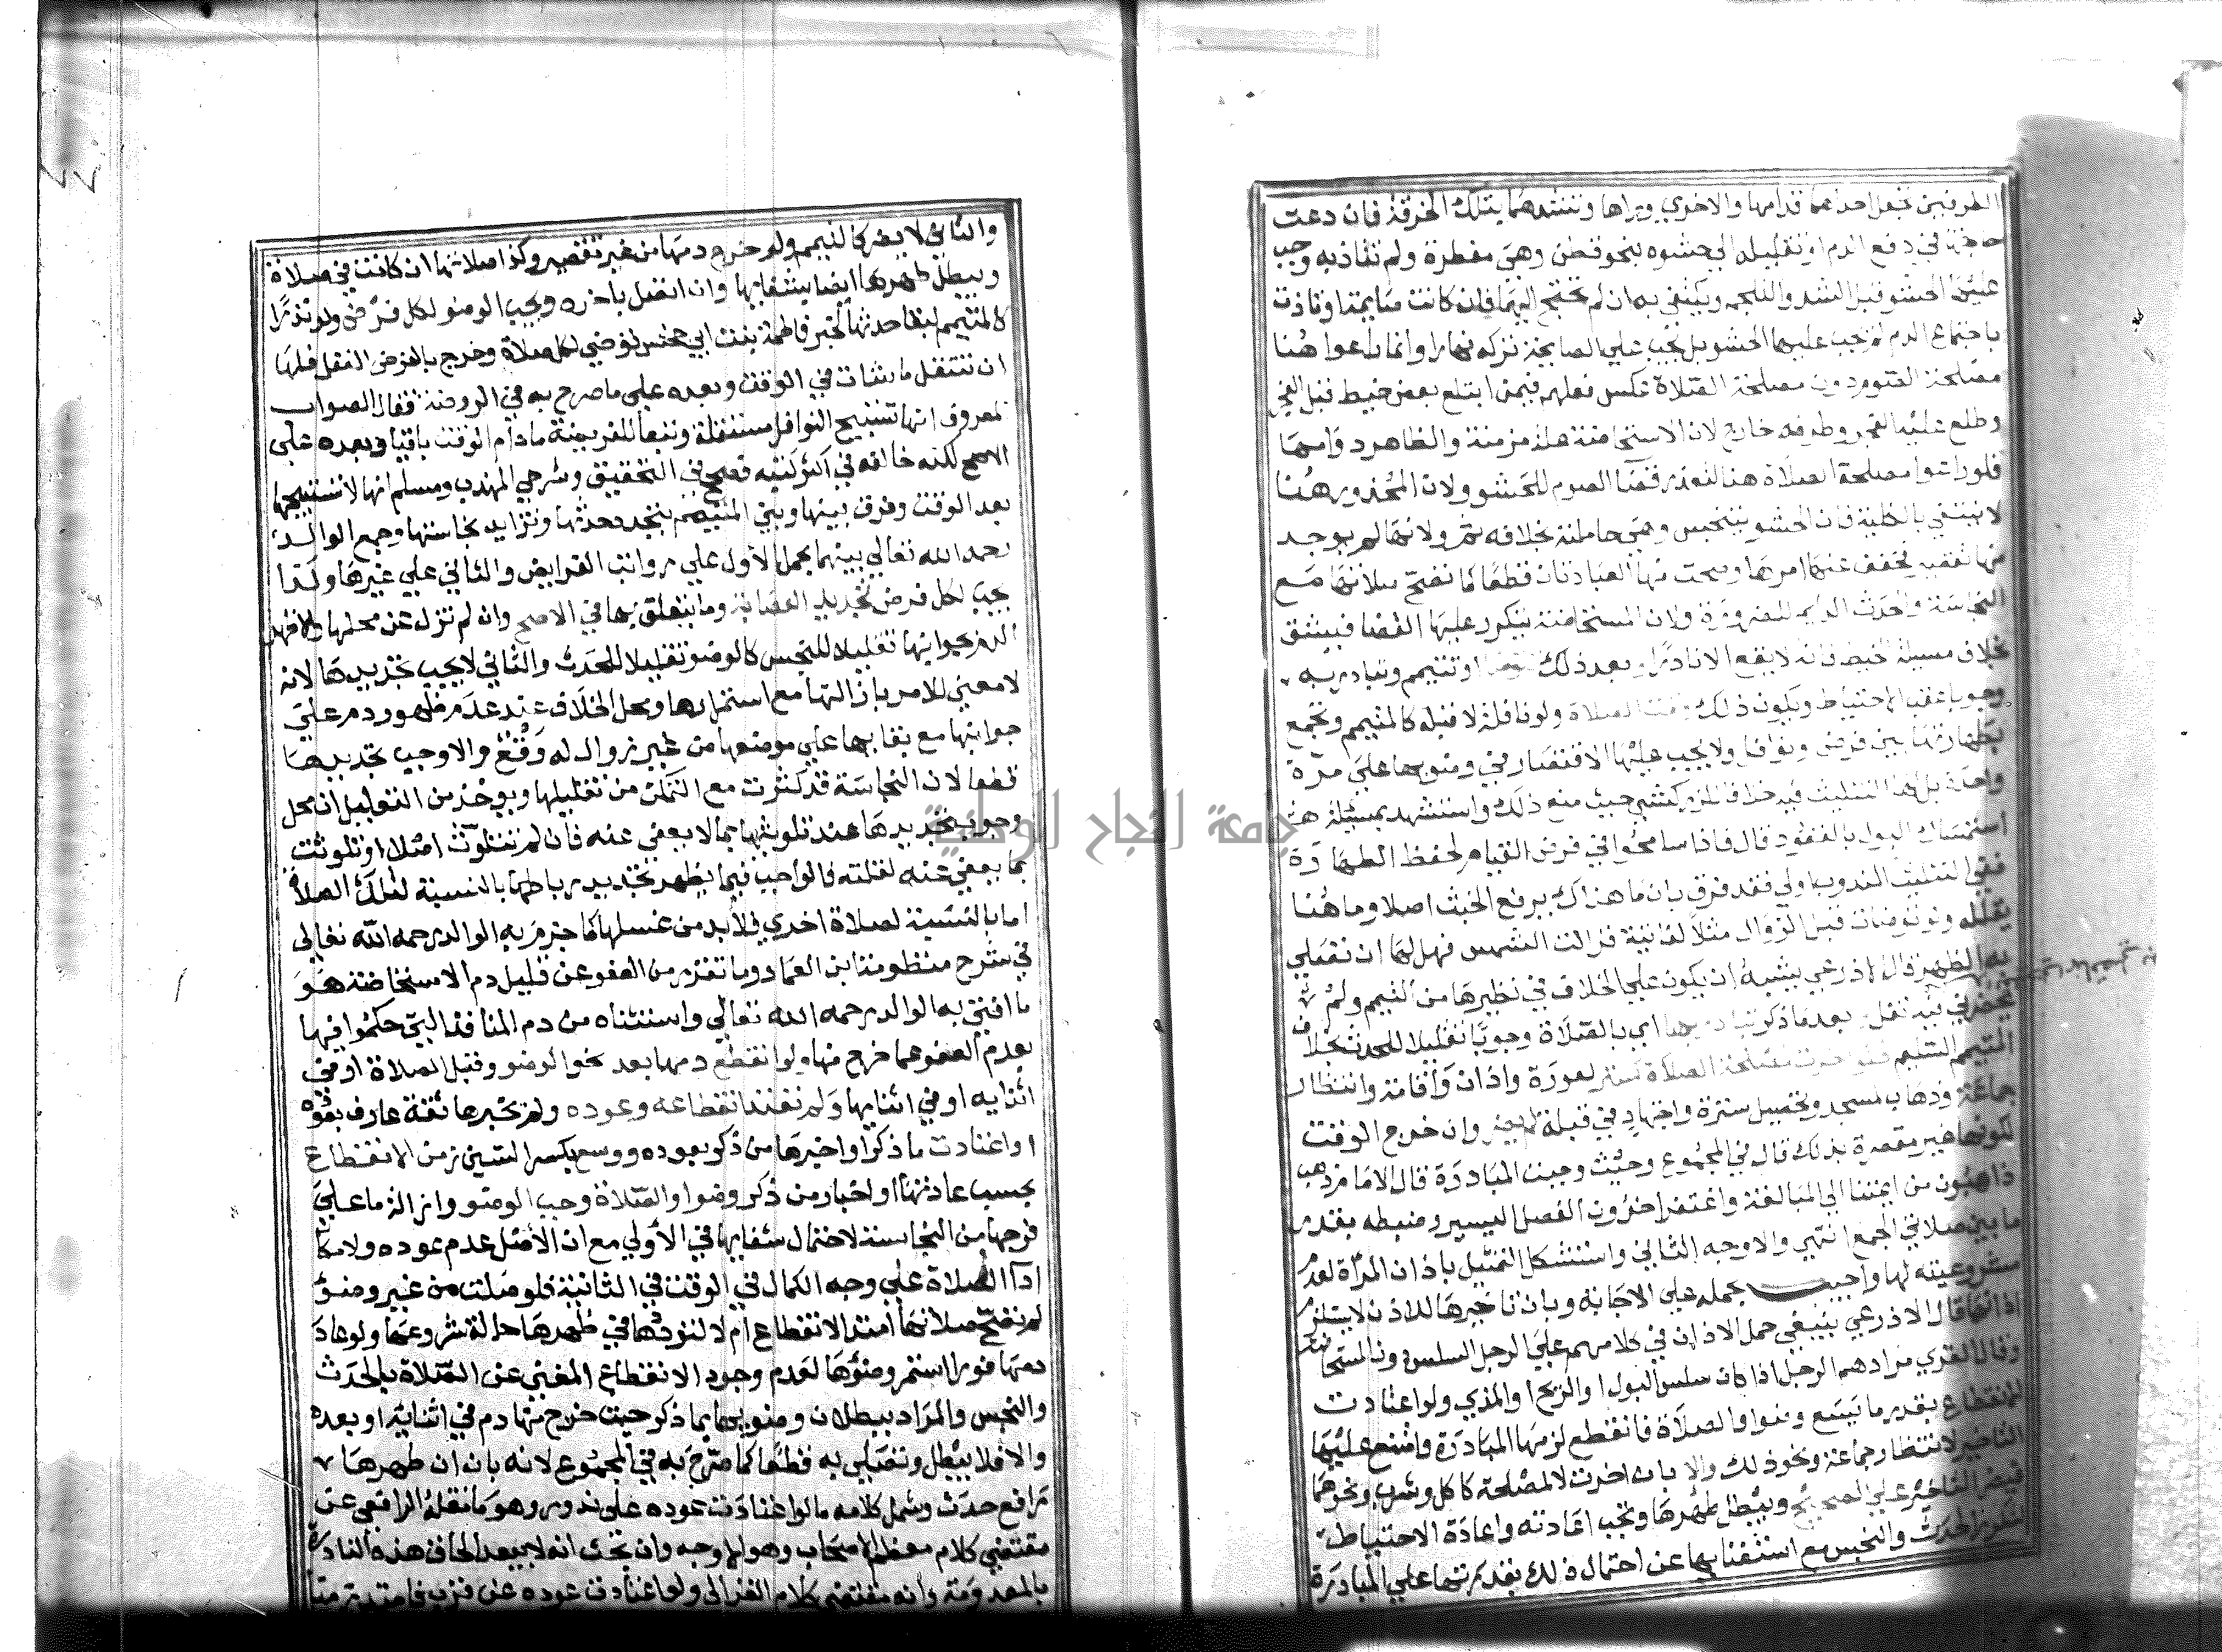 الطرفين تجعل احداهما قدامها والاخرى وراها وتشدهما بتلك الخرقة فان دعت
حاجة في دفع الدم او تقليله الى حشوه بنحو قطن وهي مفطرة ولم تتاذ به وجب
عليها الحشو قبل الشد والتلجم ويكتفى به ان لم تحتج اليهما فان كانت صايمة او تاذت
باجتماع الدم لم يجب عليها الحشو بل يجب على الصايمة تركه نهارا وانما راعوا هنا
مصلحة الصوم دون مصلحة الصلاة عكس فعلهم فيمن ابتلع بعض خيط قبل الفجر
وطلع عليه الفجر وطرفه خارج لان الاستحاضة علة مزمنة والظاهر دوامها
فلو راعوا مصلحة الصلاة هنا لتعذر قضا الصوم للحشو ولان المحذور هنا
لا ينتفي بالكلية فان الحشو يتنجس وهي حاملته بخلافه ثم ولانها لم يوجد
منها تقصير فخفف عنها امرها وصحت منها العبادتان قطعا كما تصح صلاتها مع
النجاسة والحدث الدايم للضرورة ولان المستحاضة يتكرر عليها القضا فيشق
بخلاف مسيلة الخيط فانه لا يقع الا نادرا بعد ذلك او تتيمم وتبادر به
وجوبا عقب الاحتياط ويكون ذلك وقت الصلاة ولو نافلة لا قبله كالمتيمم وتجمع
بطهارتها بين فرض ونوافل ولا يجب عليها الاقتصار في وضوها على مرة
واحدة بل لها التثليث فيه خلافا للزركشي حيث منع ذلك واستشهد بمسيلة
استمساك البول بالقعود قال فاذا سامحوا في فرض القيام لحفظ الطهارة
ففي التثليث المندوب اولى فقد فرق بان ما هناك يرفع الخبث اصلا وما هنا
يقلله ولو توضات قبل الزوال مثلا لفايتة فزالت الشمس فهل لها ان تصلي
به الظهر قال الاذرعي يشبه ان يكون على الخلاف في نظيرها من التيمم ولم
يحضرني فيه نقل بعد ما ذكر تبادر بها اي بالصلاة وجوبا تقليلا للحدث بخلاف
المتيمم السليم فلو اخرت لمصلحة الصلاة كستر لعورة واذان واقامة وانتظار
جماعة وذهاب لمسجد وتحصيل سترة واجتهاد في قبلة لم يضر وان خرج الوقت
لكونها غير مقصرة بذلك قال في المجموع وحيث وجبت المبادرة قال الامام ذهب
ذاهبون من ايمتنا الى المبالغة واغتفر اخرون الفصل اليسير وضبطه بقدر
ما بين صلاتي الجمع انتهى والاوجه الثاني واستشكل التمثيل باذان المراة لعدم
مشروعيته لها واجيب بحمله على الاجابة وبان تاخيرها للاذان لا يستلزم
اذانها قال الاذرعي ينبغي حمل الاذان في كلامهم على الرجل السلس دون المستحاضة
وقال الغزي مرادهم الرجل اذا كان سلس البول او الريح او المذي ولو اعتادت
الانقطاع بقدر ما يسع وضوا والصلاة فانقطع لزمها المبادرة وامتنع عليها
التاخير لانتظار جماعة ونحو ذلك والا بان اخرت لا لمصلحة كاكل وشرب ونحوهما
فيضر التاخير على الصحيح ويبطل طهرها وتجب اعادته واعادة الاحتياط
لتكرر الحدث والنجس مع استغنايها عن احتمال ذلك بقدرتها على المبادرة
والثاني لا يضر كالتيمم ولو خرج دمها من غير تقصير وكذا صلاتها ان كانت في صلاة
ويبطل طهرها ايضا بشفايها وان اتصل باخره ويجب الوضو لكل فرض ولو نذرا
كالمتيمم لبقا حدثها لخبر فاطمة بنت ابي حبيش توضي لكل صلاة وخرج بالفرض النفل فلها
ان تتنفل ما شات في الوقت وبعده على ما صرح به في الروضة فقال الصواب
المعروف انها تستبيح النوافل مستقلة وتبعا للفريضة ما دام الوقت باقيا وبعده على
الاصح لكنه خالفه في اكثر كتبه فصحح في التحقيق وشرحي المهذب ومسلم انها لا تستبيحها
بعد الوقت وفرق بينها وبين المتيمم بتجدد حدثها وتزايد نجاستها وجمع الوالد
رحمه الله تعالى بينهما بحمل الاول على رواتب الفرايض والثاني على غيرها وكذا
يجب لكل فرض تجديد العصابة وما يتعلق بها في الاصح وان لم تزل عن محلها ولا ظهر
الدم بجوانبها تقليلا للنجس كالوضو تقليلا للحدث والثاني لا يجب تجديدها لانه
لا معنى للامر بازالتها مع استمرارها ومحل الخلاف عند عدم ظهور دم على
جوانبها مع بقايها على موضعها من غير زوال له وقع والا وجب تجديدها
قطعا لان النجاسة قد كثرت مع التمكن من تقليلها ويوخذ من التعليل ان محل
وجوب تجديدها عند تلوثها بما لا يعفى عنه فان لم تتلوث اصلا او تلوثت
بما يعفى عنه لقلته فالواجب فيما يظهر تجديد رباطها بالنسبة لتلك الصلاة
اما بالنسبة لصلاة اخرى فلا بد من غسلها كما جزم به الوالد رحمه الله تعالى
في شرح منظومة ابن العماد وما تقرر من العفو عن قليل دم الاستحاضة هو
ما افتى به الوالد رحمه الله تعالى واستثناه من دم المنافذ التي حكموا فيها
بعدم العفو عما خرج منها ولو انقطع دمها بعد نحو الوضو وقبل الصلاة او في
اثنايه او في اثنايها ولم تعتد انقطاعه وعوده ولم يخبرها ثقة عارف بعوده
او اعتادت ما ذكر او اخبرها من ذكر بعوده ووسع بكسر السين زمن الانقطاع
بحسب عادتها او اخبار من ذكر وضوا والصلاة وجب الوضو وازالة ما على
فرجها من النجاسة لاحتمال شفايها في الاولى مع ان الاصل عدم عوده ولامكان
ادا الصلاة على وجه الكمال في الوقت في الثانية فلو صلت من غير وضو
لم تصح صلاتها امتد الانقطاع ام لا لترددها في طهرها حالة شروعها ولو عاد
دمها فورا استمر وضوها لعدم وجود الانقطاع المغني عن الصلاة بالحدث
والنجس والمراد ببطلان وضوها بما ذكر حيث خرج منها دم في اثنايه او بعده
والا فلا يبطل وتصلي به قطعا كما صرح به في المجموع لانه بان ان طهرها
رافع حدث وشمل كلامه ما لو اعتادت عوده على ندور وهو ما نقله الرافعي عن
مقتضى كلام معظم الاصحاب وهو الاوجه وان بحث انه لا يبعد الحاق هذه النادرة
بالمعدومة وانه مقتضى كلام الغزالي ولو اعتادت عوده عن قرب فامتدت مدة
جامعة النجاح الوطنية